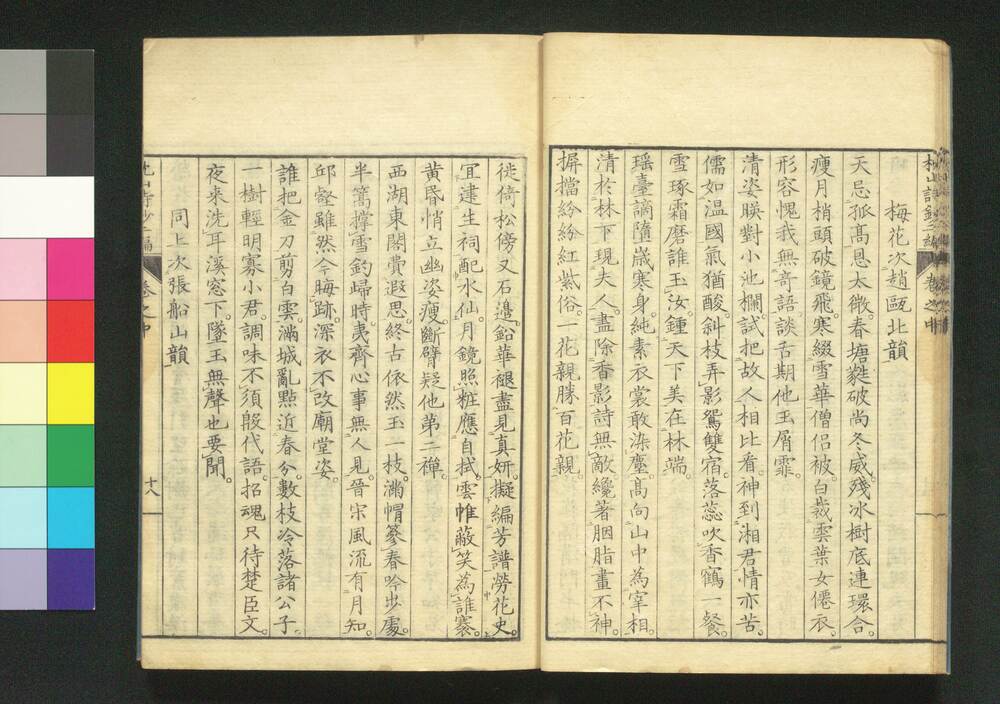 梅花次趙甌北韻
天忌孤高恩太微。春塘㽔破尚冬威。殘冰樹底連環合。
瘦月梢頭破鏡飛。寒綴雪華僧侶被。白裁雲葉女僊衣。
形容愧我無奇語。談舌期他玉屑霏。
清姿暎對小池欄。試把故人相比看。神到湘君情亦苦。
儒如溫國氣猶酸。斜枝弄影鴛雙宿。落蕊吹香鶴一餐。
雪琢霜磨誰玉汝。鍾天下美在林端。
瑶臺謫墮歲寒身。純素衣裳敢染塵。高向山中為宰相。
清於林下現夫人。盡除香影詩無敵。纔著胭脂畫不神。
摒擋紛紛紅紫俗。一花親勝百花親。
徙倚松傍又石邊。鉛華褪盡見真妍。擬編芳譜勞花史。
宜建生祠配水仙。月鏡照粧應自拭。雲帷蔽笑為誰褰。
黃昏悄立幽姿瘦。斷臂疑他第二禪。
西湖東閣費遐思。終古依然玉一枝。滿帽簪春吟步處。
半篙撐雪釣歸時。夷齊心事無人見。晉宋風流有月知。
邱壑雖然今晦跡。深衣不改廟堂姿。
誰把金刀剪白雲。滿城亂點近春分。數枝冷落諸公子。
一樹輕明寡小君。調味不須殷代語。招魂只待楚臣文。
夜来洗耳溪窓下。墜玉無聲也要聞。
同上次張船山韻
卷之中
十八